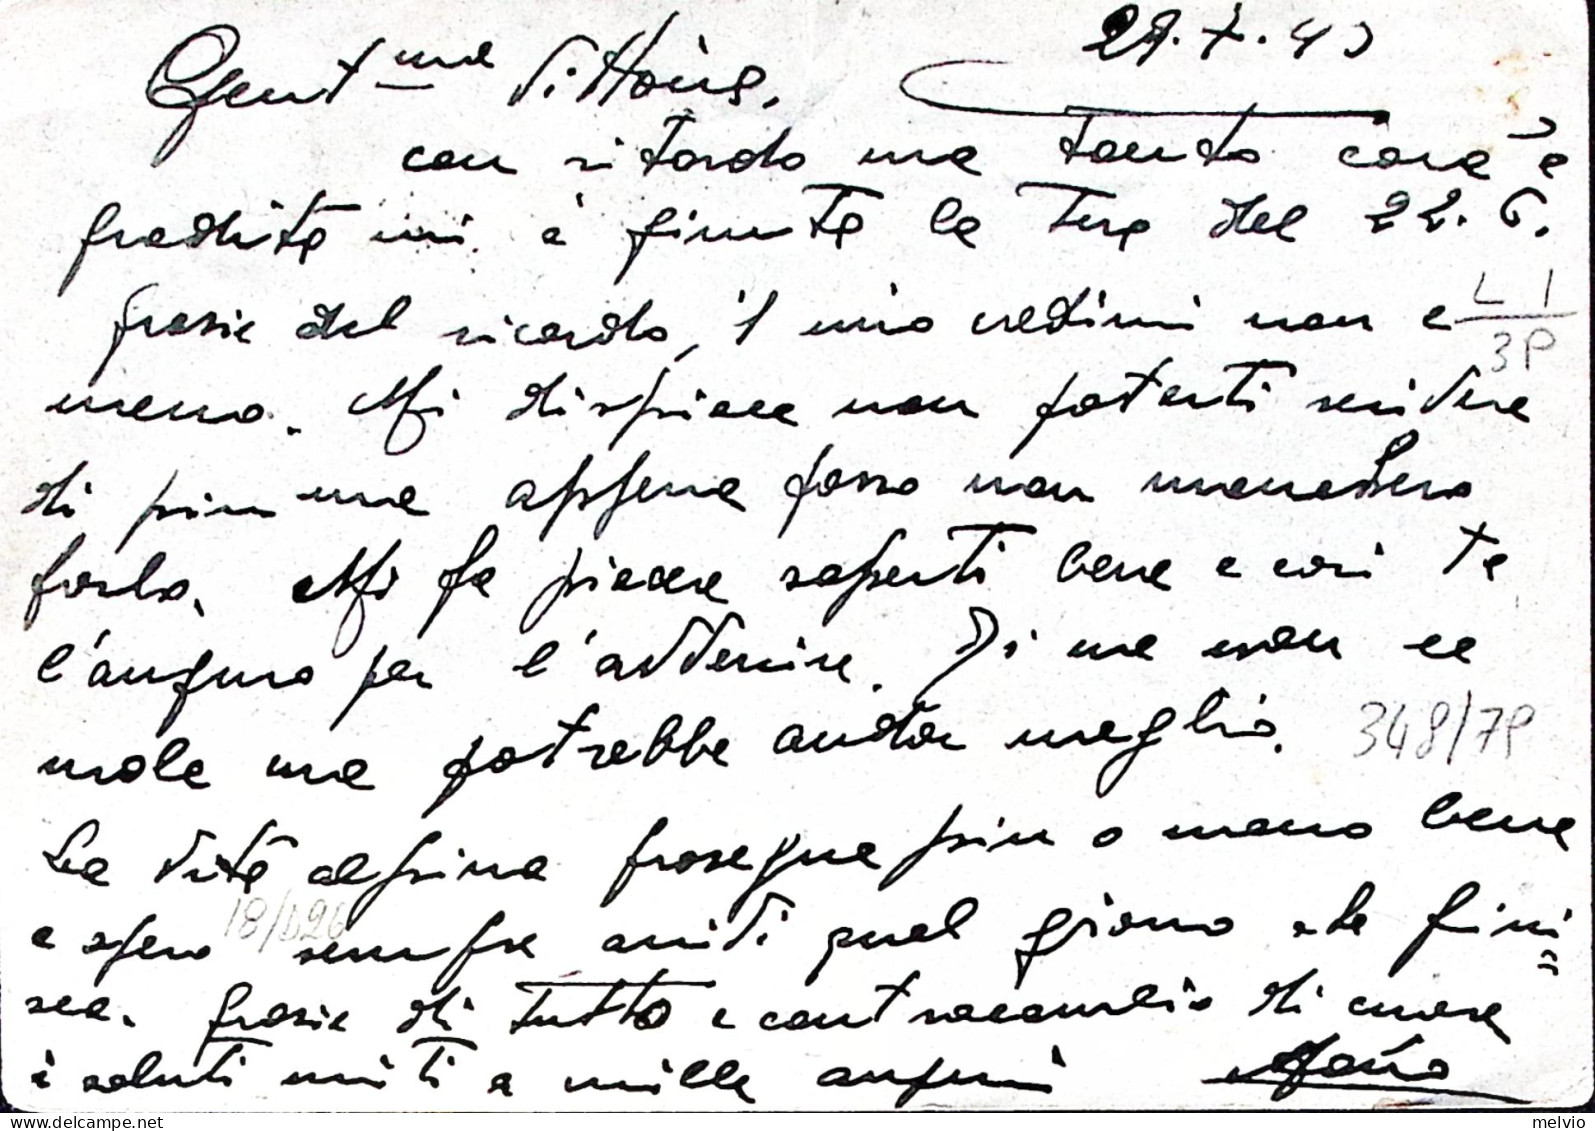 29.7.43
Gent.ma Vittoria,
con ritardo ma tanto cara e
gradita mi è giunta la tua del 22.6.
grazie del ricordo, il mio credimi non è
meno. Mi dispiace non poterti scrivere
di più ma appena posso non mancherò
farlo. Mi fa piacere saperti bene e così te
l'auguro per l'avvenire. Di me non va
male ma potrebbe andar meglio.
La vita alpina prosegue più o meno bene
e spero sempre arrivi quel giorno che fini=
sca. grazie di tutto e contraccambio di cuore
i saluti uniti a mille auguri
L 1
3P
348/7P
18/026
melvio